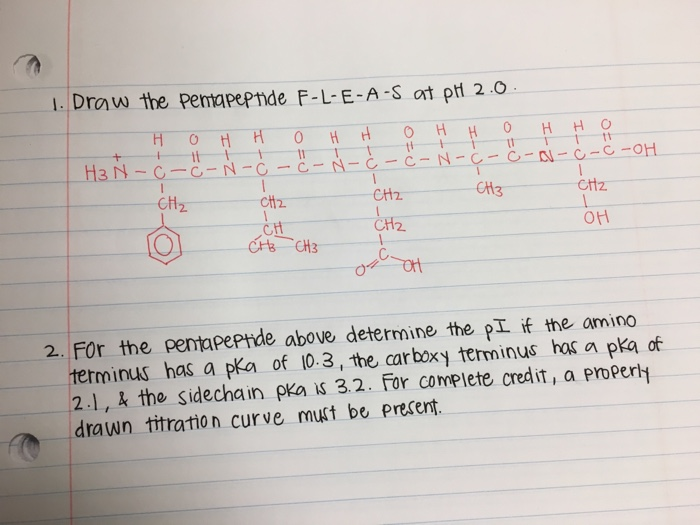 1. Draw the pentapeptide F-L-E-A-S at pH 2.0.
H O H H O H H O H H O H H O
H3N+ - C - C - N - C - C - N - C - C - N - C - C - N - C - C - OH
CH2 CH2 CH2 CH3 CH2
CH CH2 OH
CH3 CH3 C
O OH
2. For the pentapeptide above determine the pI if the amino
terminus has a pka of 10.3, the carboxy terminus has a pka of
2.1, & the sidechain pka is 3.2. For complete credit, a properly
drawn titration curve must be present.